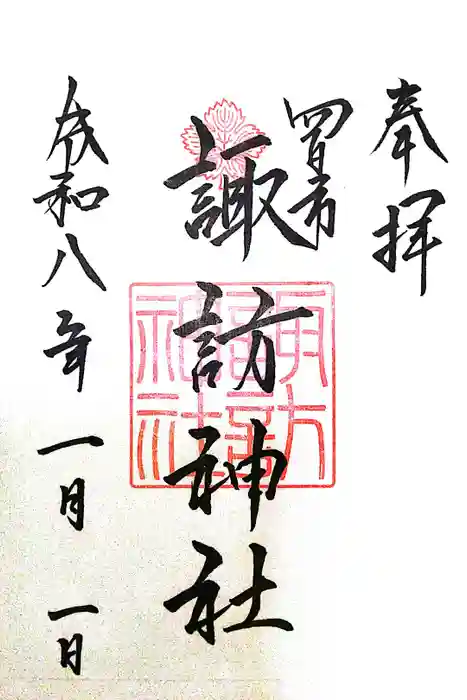 奉拝
四日市
諏訪神社
諏訪神社
令和八年 一月 一日